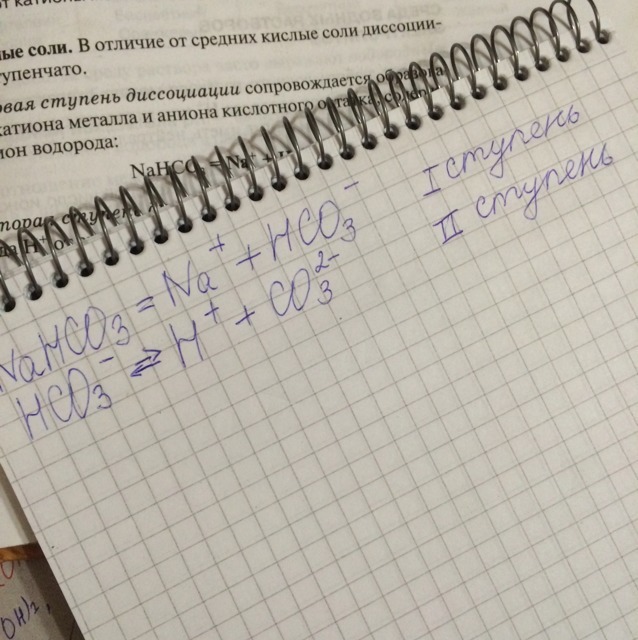 ые соли. В отличие от средних кислые соли диссоции-
тупенчато.
вая ступень диссоциации сопровождается
катиона металла и аниона кислотного
ион водорода:
NaHCO₃ = Na⁺ +
NaHCO₃ = Na⁺ + HCO₃⁻ I ступень
HCO₃⁻ ⇄ H⁺ + CO₃²⁻ II ступень